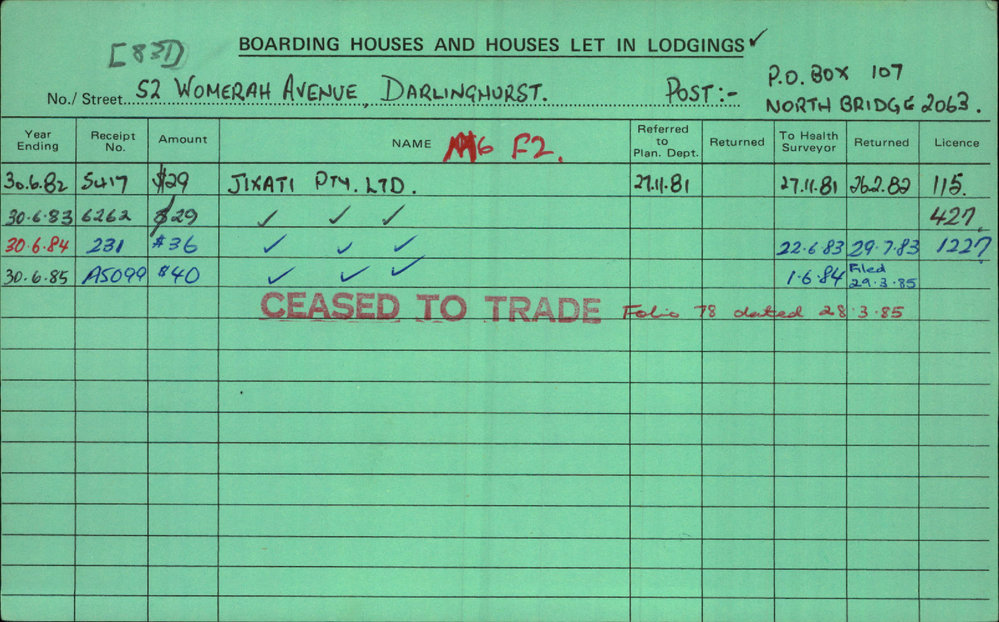 [831]
BOARDING HOUSES AND HOUSES LET IN LODGINGS ✓
No./Street. 52 WOMERAH AVENUE, DARLINGHURST. POST:- P.O. BOX 107
NORTH BRIDGE 2063.
Year Ending Receipt No. Amount NAME M6 F2. Referred to Plan. Dept. Returned To Health Surveyor Returned Licence
30.6.82 5417 $29 JIXATI PTY. LTD. 27.11.81 27.11.81 26.2.82 115.
30.6.83 6262 $29 ✓ ✓ ✓ 427.
30.6.84 231 $36 ✓ ✓ ✓ 22.6.83 29.7.83 1227
30.6.85 A5099 $40 ✓ ✓ ✓ 1.6.84 Filed 29.3.85
CEASED TO TRADE Folio 78 dated 28.3.85